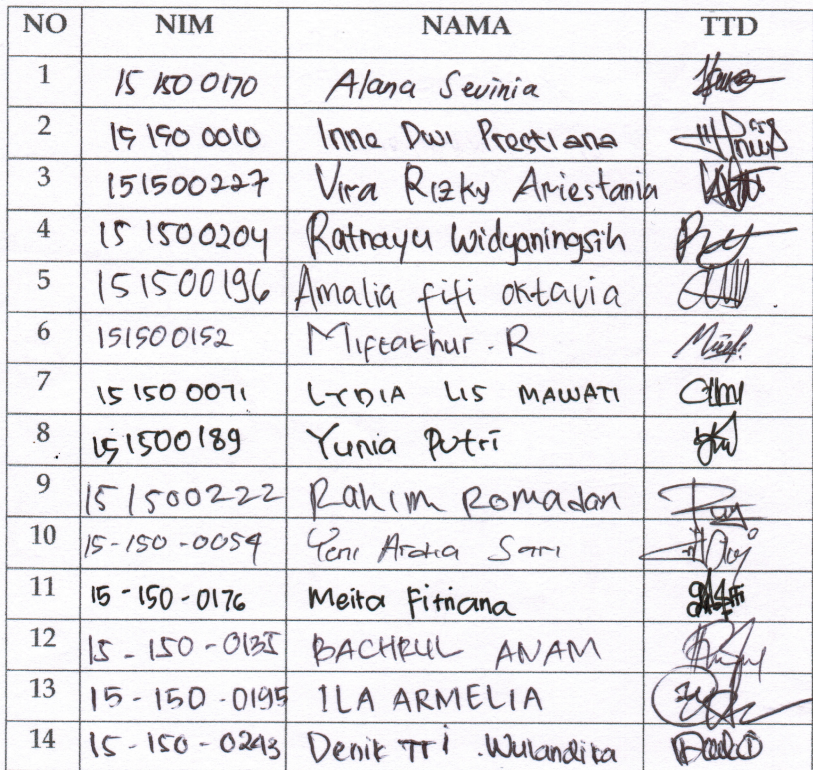 NO NIM NAMA TTD
1 15 150 0170 Alana Sevinia
2 15 150 0010 Inne Dwi Prestiana
3 151500227 Vira Rizky Ariestania
4 15 1500204 Ratnayu Widyaningsih
5 151500196 Amalia fifi oktavia
6 151500152 Miftakhur . R
7 15 150 0071 LYDIA LIS MAWATI
8 151500189 Yunia Putri
9 151500222 Rahim Romadan
10 15-150-0054 Yeni Sari
11 15-150-0176 Meita Fitriana
12 15-150-0135 BACHRUL ANAM
13 15-150-0195 ILA ARMELIA
14 15-150-0243 Denik Tri Wulandika